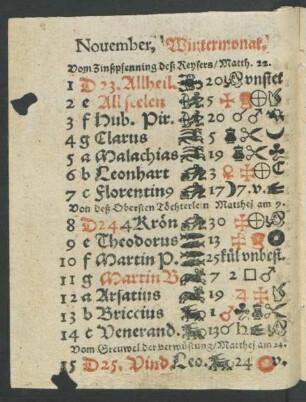 November, Wintermonat.
Vom Zinßpfenning deß Keysers/ Matth. 22.
1 D 23. Allheil. 20 vnstet
2 e All seelen 5
3 f Hub. Pir. 20 ☌ ♂
4 g Clarus 5
5 a Malachias 19
6 b Leonhart 3 ♀
7 c Florentin9 17 )7.v.
Von deß Obersten Töchterlein Matthei am 9.
8 D 24 4 Krön 30
9 e Theodorus 13
10 f Martin P. 25 kül vnbest.
11 g Martin B 7 □ ♂
12 a Arsatius 19 ♃
13 b Briccius 1
14 c Venerand. 13 ☍ ♄
Vom Grewel der verwüstung/ Matthei am 24.
15 D 25. Vind. Leo. 24 v.